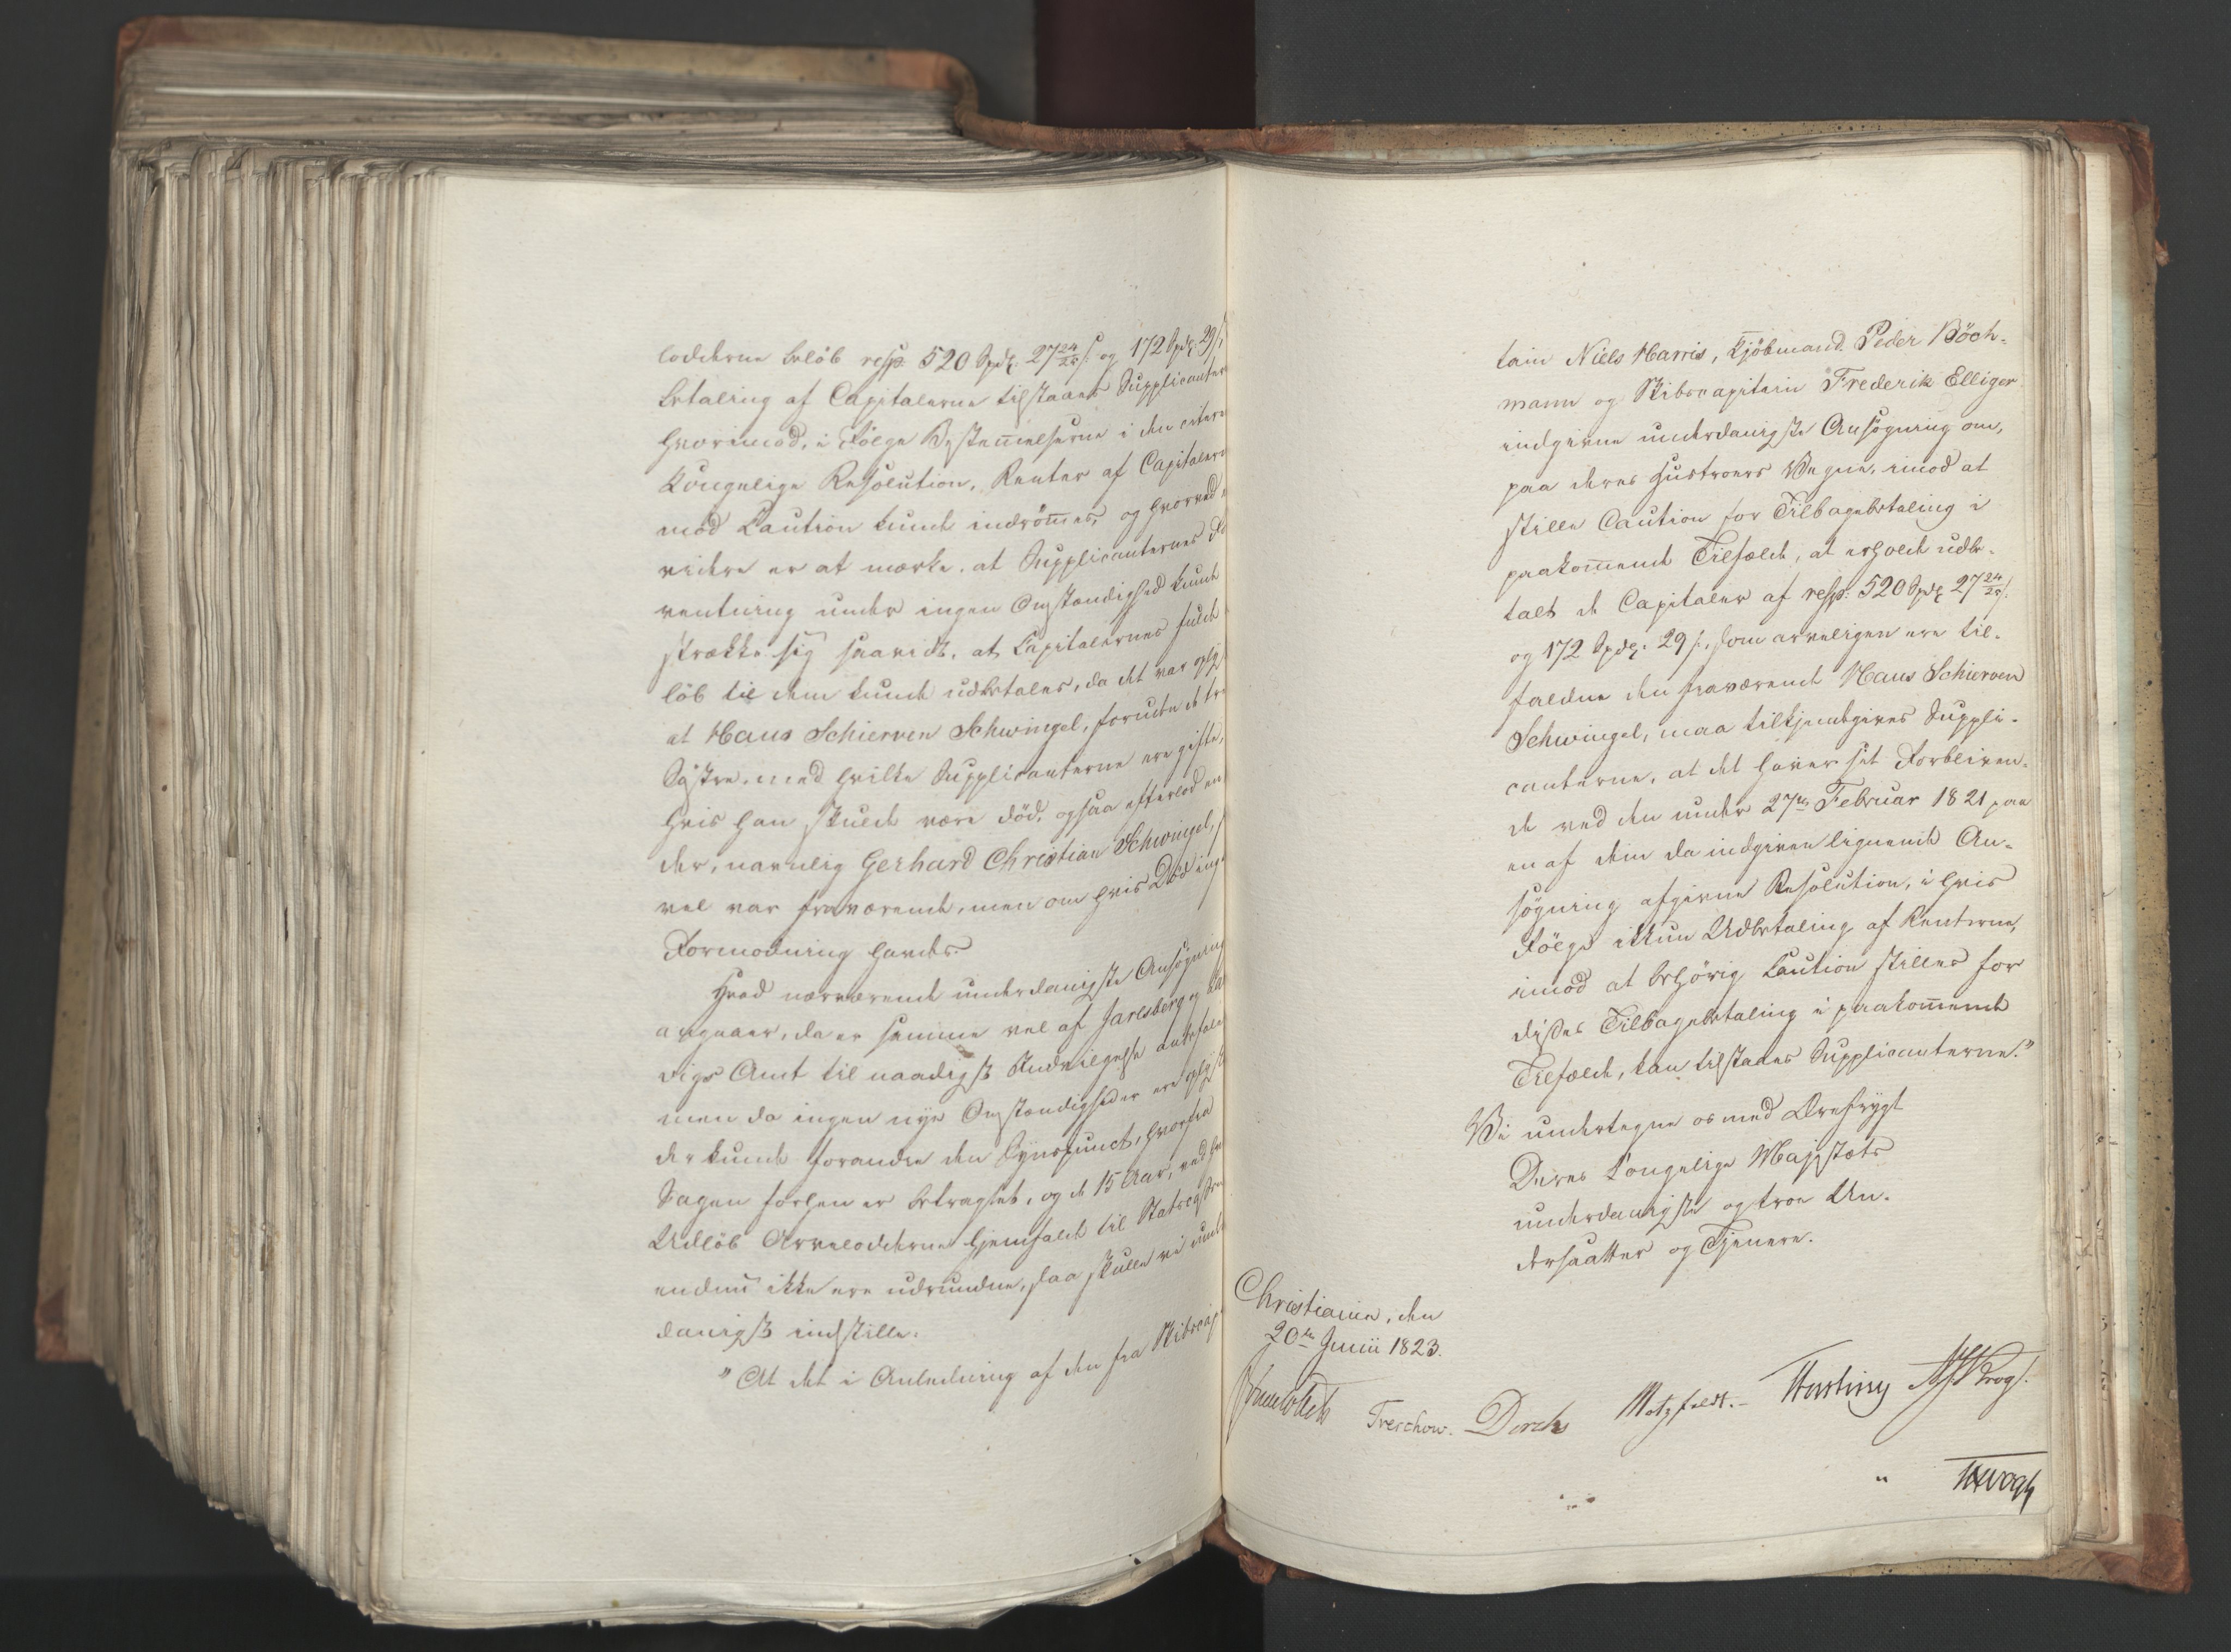 lodderne beløb resp. 520 Spdlr. 27 24/25 s. og 172 Spdlr. 29 s.
betaling af Capitalerne tilstaaes Supplicanter
hvorimod, i Følge Bestem̄elserne i den citere
Kongelige Resolution, Renter af Capitalern
mod Caution kunde indrøm̄es, og hvorved
videre er at mærke, at Supplicanternes
ventning under ingen Omstændighed kunde
strække sig saavidt, at Capitalernes fulde
løb til dem kunde udbetales, da det var oply
at Hans Schierven Schwingel, foruden de tre
Søstre, med hvilke Supplicanterne ere gifte,
hvis han skulde være død, ogsaa efterlod en
der, navnlig Gerhard Christian Schwingel,
vel var fraværende, men om hvis Død ing
Formodning havdes.
Hvad nærværende underdanigste Ansøgning
angaaer, da er samme vel af Jarlsberg og La
vigs Amt til naadigst Indvilgelse anbefale
men da ingen nye Omstændigheder ere oplyst
der kunde forandre den Synspunct, hvorfra
Sagen forhen er betragtet, og de 15 Aar, ved
Udløb Arvelodderne hjemfaldt til Statscassen
endnu ikke ere udrundne, saa skulle vi unde
danigst indstille:
"At det i Anledning af den fra Skibscap
tain Niels Harris, Kjøbmand Peder Böch-
mann og Skibscapitain Frederik Elliger
indgivne underdanigste Ansøgning om,
paa deres Hustroers Vegne, imod at
stille Caution for Tilbagebetaling i
paakom̄ende Tilfælde, at erholde udbe-
talt de Capitaler af resp. 520 Spdlr 27 24/25 s.
og 172 Spdlr. 29 s., som arveligen ere til-
faldne den fraværende Hans Schierven
Schwingel, maa tilkjendegives Suppli-
canterne, at det haver sit Forbliven-
de ved den under 27de Februar 1821 paa
en af dem da indgiven lignende An-
søgning afgivne Resolution, i hvis
Følge ikkun Udbetaling af Renterne,
imod at behørig Caution stilles for
disses Tilbagebetaling i paakom̄ende
Tilfælde, kan tilstaaes Supplicanterne."
Vi undertegne os med Ærefrygt
Deres Kongelige Majestæts
underdanigste og troe Un-
dersaatter og Tjenere.
Christiania, den
20de Junii 1823.
Treschow. Diriks Motzfeldt.- JHVogt.